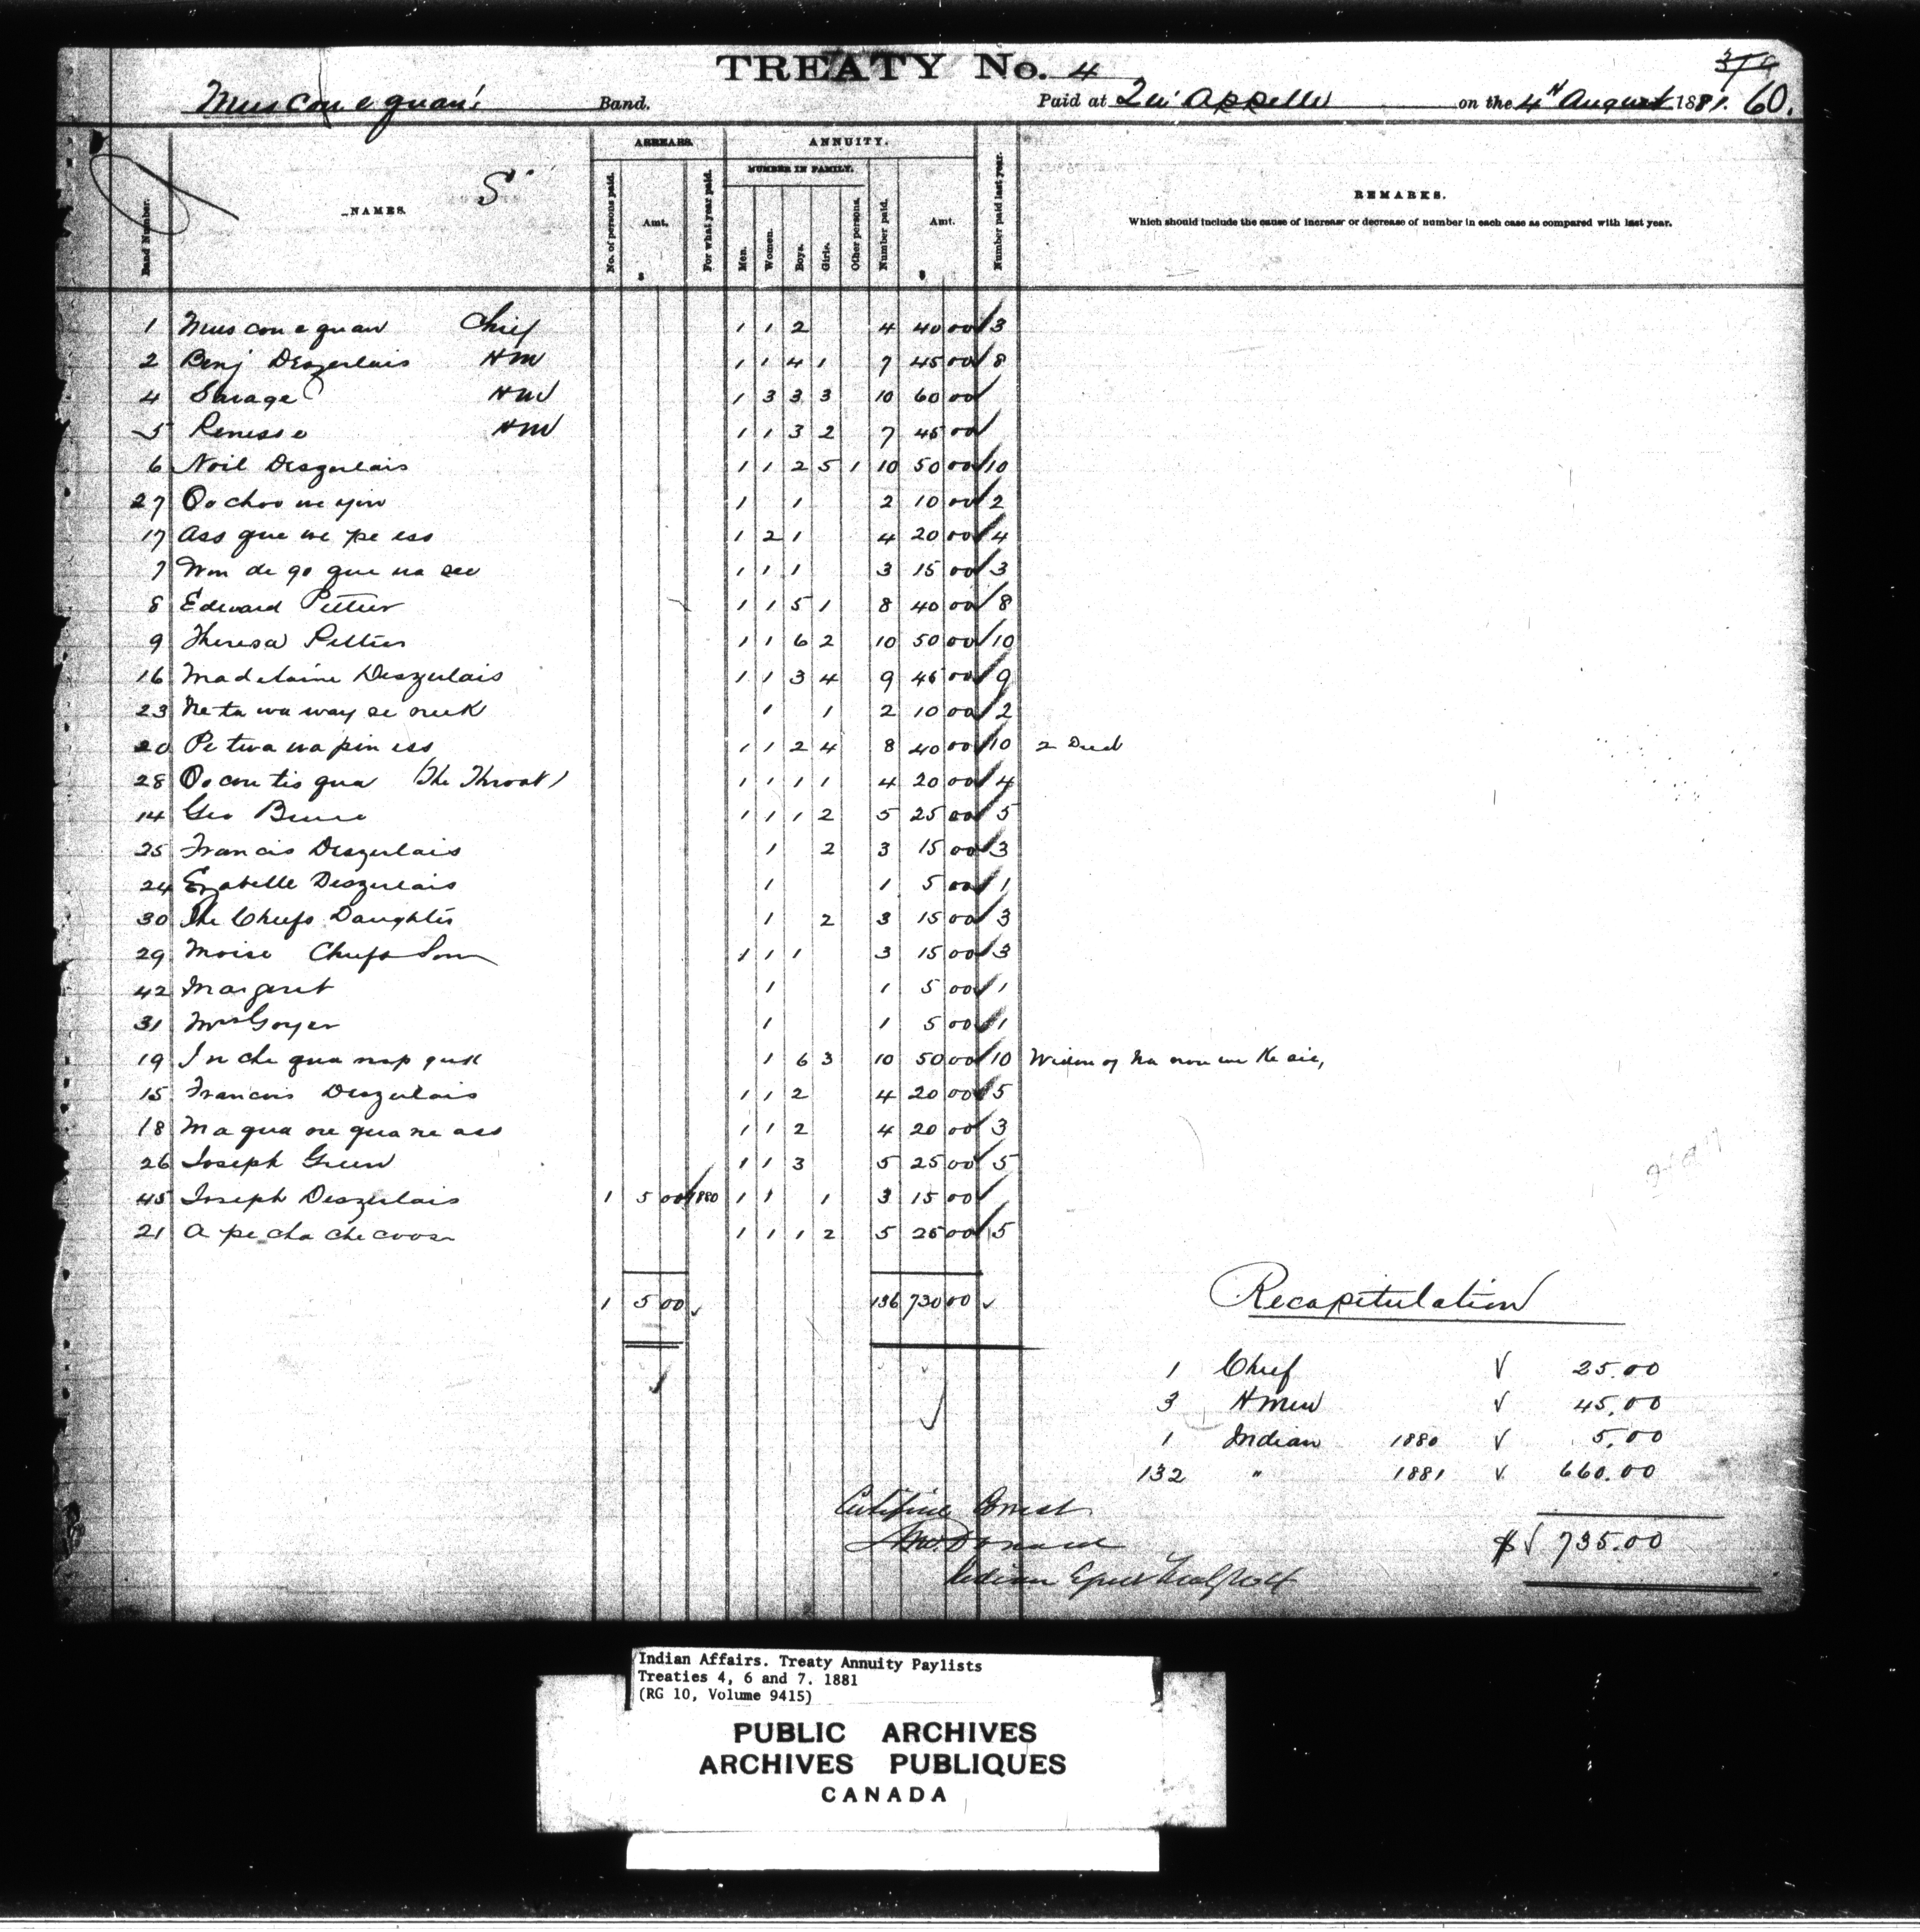 TREATY No. 4
60.
Muscowequan's Band. Paid at Qu'Appelle on the 4th August 1881.
ARREARS. ANNUITY.
NUMBER IN FAMILY.
Band Number. NAMES. No. of persons paid. Amt. For what year paid. Men. Women. Boys. Girls. Other persons. Number paid. Amt. Number paid last year. REMARKS.
Which should include the cause of increase or decrease of number in each case as compared with last year.
$ $
1 Muscowequan Chief 1 1 2 4 40 00 3
2 Benj Desjerlais HM 1 1 4 1 7 45 00 8
4 Savage HM 1 3 3 3 10 60 00
5 Penesse HM 1 1 3 2 7 45 00
6 Noil Desjerlais 1 1 2 5 1 10 50 00 10
27 Oo choo we yin 1 1 2 10 00 2
17 Ass que we pe ess 1 2 1 4 20 00 4
7 Win de go que na see 1 1 1 3 15 00 3
8 Edward Peltier 1 1 5 1 8 40 00 8
9 Theresa Peltier 1 1 6 2 10 50 00 10
16 Madelaine Desjerlais 1 1 3 4 9 45 00 9
23 Ne ta wa way se neek 1 1 2 10 00 2
20 Pe twa wa pin ess 1 1 2 4 8 40 00 10 2 Died
28 Oo cou tis qua (The Throat) 1 1 1 1 4 20 00 4
14 Geo 1 1 1 2 5 25 00 5
25 Francis Desjerlais 1 2 3 15 00 3
24 Ezabelle Desjerlais 1 1 5 00 1
30 The Chiefs Daughter 1 2 3 15 00 3
29 Moise Chiefs Son 1 1 1 3 15 00 3
42 Margaret 1 1 5 00 1
31 Mrs Goyer 1 1 5 00 1
19 In che qua nap quk 1 6 3 10 50 00 10 Widow of
15 Francois Desjerlais 1 1 2 4 20 00 5
18 Ma qua ne qua ne ass 1 1 2 4 20 00 3
26 Joseph Green 1 1 3 5 25 00 5
45 Joseph Desjerlais 1 5 00 1880 1 1 1 3 15 00
21 A pe cha che coose 1 1 1 2 5 25 00 5
1 5 00 136 730 00
Recapitulation
1 Chief 25.00
3 H men 45.00
1 Indian 1880 5.00
132 " 1881 660.00
$ 735.00
Certified Correct
Indian
Indian Affairs. Treaty Annuity Paylists
Treaties 4, 6 and 7. 1881
(RG 10, Volume 9415)
PUBLIC ARCHIVES
ARCHIVES PUBLIQUES
CANADA